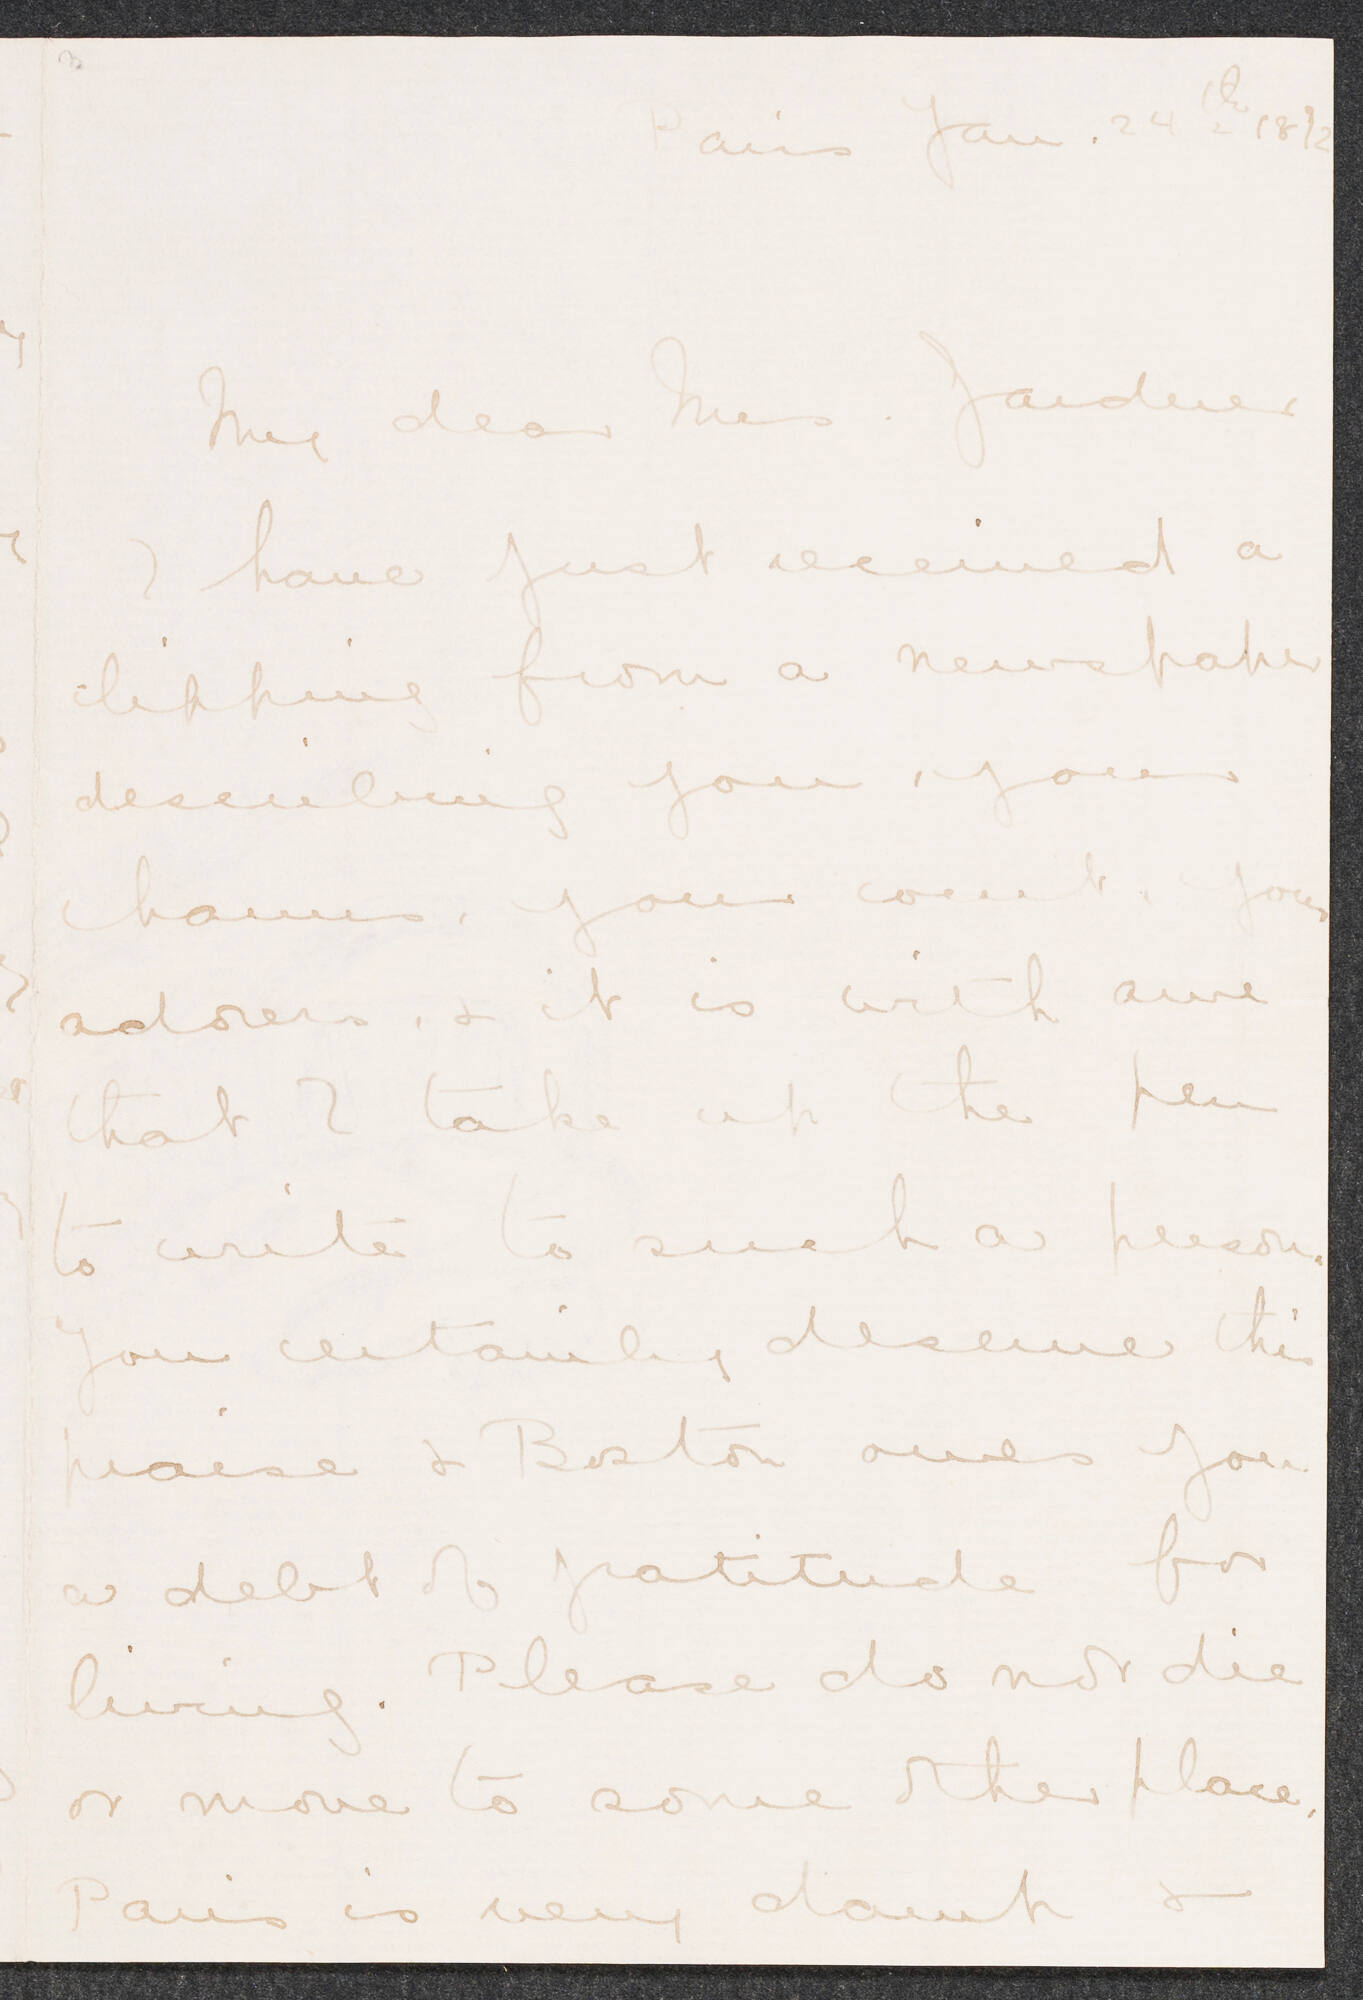 Paris Jan. 24th 1892
My dear Mrs. Gardner
I have just received a
clipping from a newspaper
describing you, your
charms, your court, your
adorers, & it is with awe
that I take up the pen
to write to such a person.
You certainly deserve this
praise & Boston owes you
a debt of gratitude for
living. Please do not die
or move to some other place.
Paris is very damp &